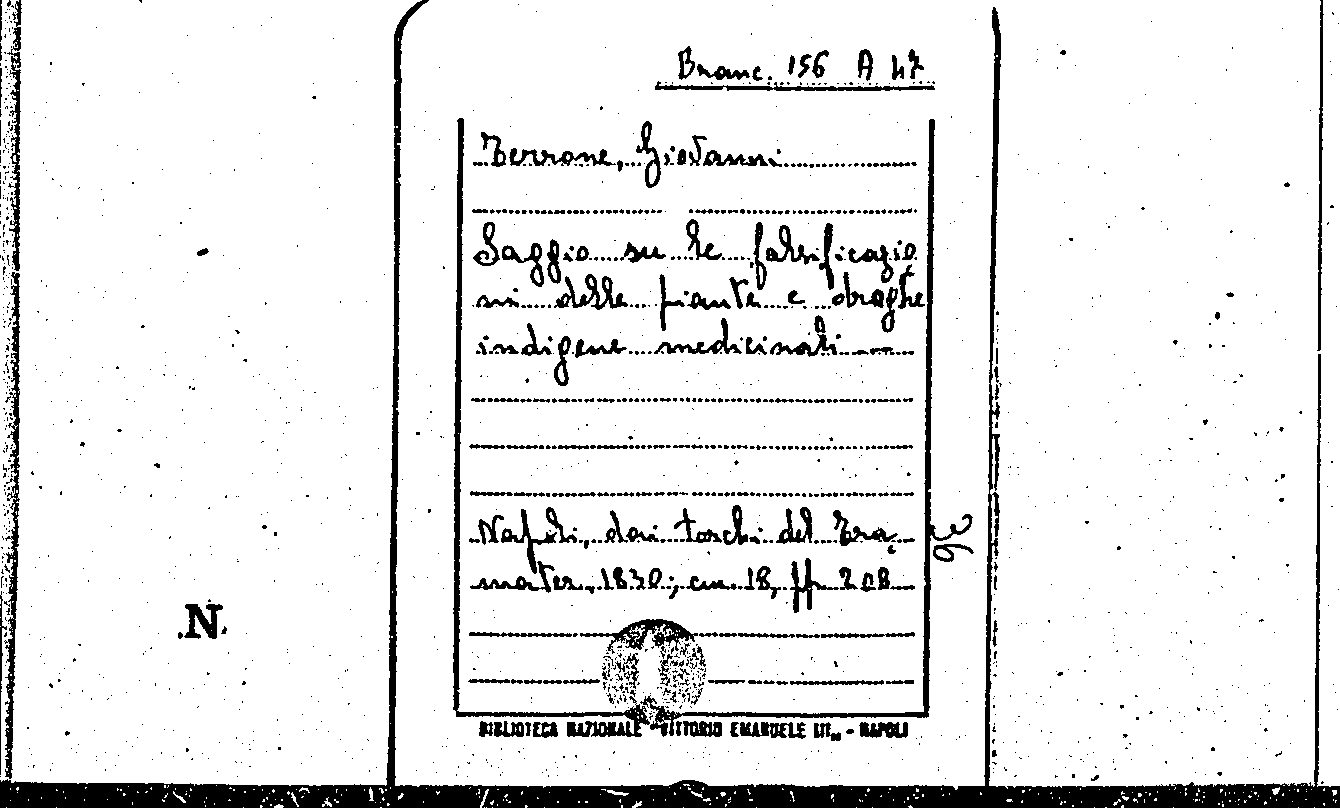 Branc. 156 A 47
Terrone, Giovanni
Saggio su le falsificazio
ni delle piante e droghe
indigene medicinali
Napoli, dai torchi del Tra,
mater, 1830; cm 18, pp 208
36
N.
BIBLIOTECA NAZIONALE "VITTORIO EMANUELE III„ - NAPOLI